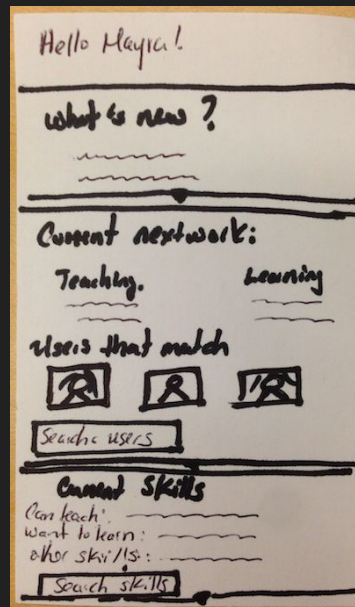 Hello Mayra!
What is new?
Current nextwork:
Teaching. Learning
Users that match
Search users
Current skills
Can teach:
Want to learn:
other skills:
Search skills